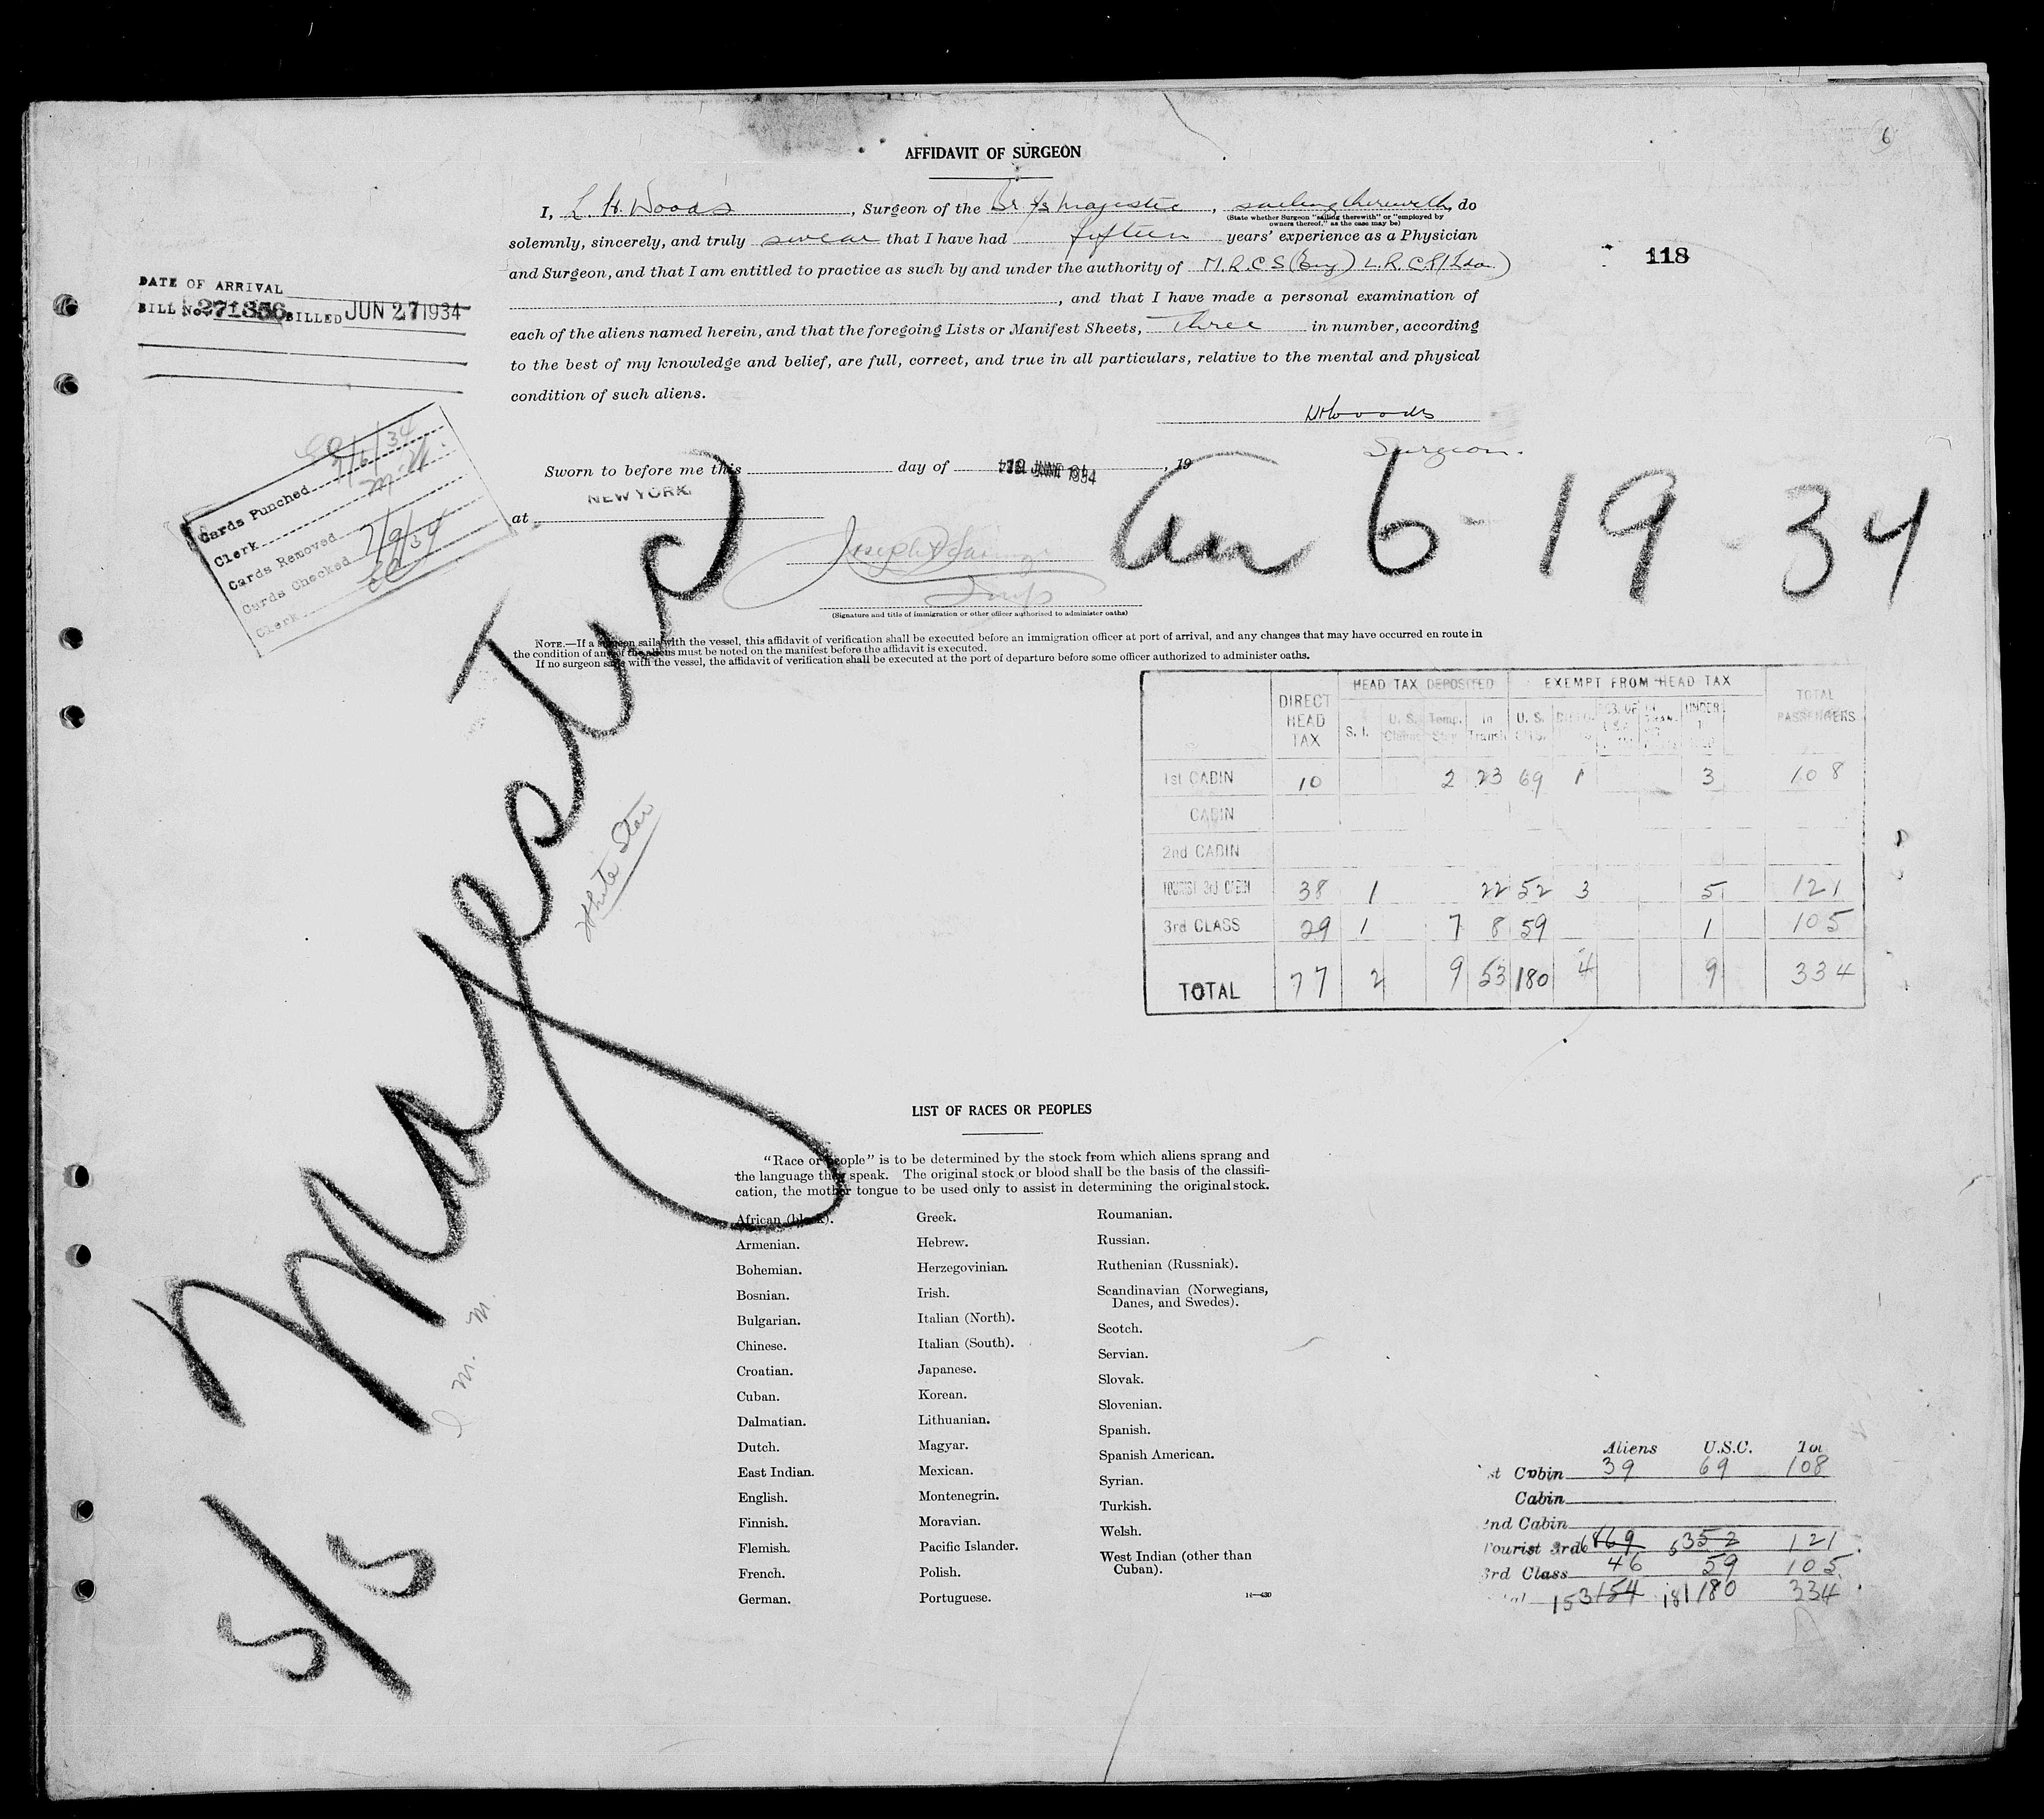 6
AFFIDAVIT OF SURGEON
I, L. H. Woods, Surgeon of the Br. s/s Majestic, sailing therewith, do
(State whether Surgeon "sailing therewith" or "employed by
owners thereof," as the case may be)
solemnly, sincerely, and truly swear that I have had fifteen years' experience as a Physician
and Surgeon, and that I am entitled to practice as such by and under the authority of M.R.C.S (Eng) L.R.C.P (Lon.)
, and that I have made a personal examination of
each of the aliens named herein, and that the foregoing Lists or Manifest Sheets, Three in number, according
to the best of my knowledge and belief, are full, correct, and true in all particulars, relative to the mental and physical
condition of such aliens.
118
DATE OF ARRIVAL
BILL No. 271356 BILLED JUN 27 1934
LHWoods
Surgeon.
Sworn to before me this day of 19 JUNE 1934, 19
NEW YORK.
at
Joseph
Insp
(Signature and title of immigration or other officer authorised to administer oaths)
Cards Punched 7/6/34
Clerk
Cards Removed
Cards Checked 7/9/34
Clerk
Arr 6-19-34
NOTE.—If a surgeon sails with the vessel, this affidavit of verification shall be executed before an immigration officer at port of arrival, and any changes that may have occurred en route in
the condition of any of the aliens must be noted on the manifest before the affidavit is executed.
If no surgeon sails with the vessel, the affidavit of verification shall be executed at the port of departure before some officer authorized to administer oaths.
S/S Majestic
White Star
DIRECT HEAD TAX HEAD TAX DEPOSITED EXEMPT FROM HEAD TAX TOTAL PASSENGERS
S. I. U. S. Temp. Stay In Transit U. S. UNDER
1st CABIN 10 2 23 69 1 3 108
CABIN
2nd CABIN
TOURIST 3rd CABIN 38 1 22 52 3 5 121
3rd CLASS 29 1 7 8 59 1 105
TOTAL 77 2 9 53 180 4 9 334
LIST OF RACES OR PEOPLES
"Race or people" is to be determined by the stock from which aliens sprang and
the language they speak. The original stock or blood shall be the basis of the classifi-
cation, the mother tongue to be used only to assist in determining the original stock.
African (black).
Armenian.
Bohemian.
Bosnian.
Bulgarian.
Chinese.
Croatian.
Cuban.
Dalmatian.
Dutch.
East Indian.
English.
Finnish.
Flemish.
French.
German.
Greek.
Hebrew.
Herzegovinian.
Irish.
Italian (North).
Italian (South).
Japanese.
Korean.
Lithuanian.
Magyar.
Mexican.
Montenegrin.
Moravian.
Pacific Islander.
Polish.
Portuguese.
Roumanian.
Russian.
Ruthenian (Russniak).
Scandinavian (Norwegians,
Danes, and Swedes).
Scotch.
Servian.
Slovak.
Slovenian.
Spanish.
Spanish American.
Syrian.
Turkish.
Welsh.
West Indian (other than
Cuban).
Aliens U.S.C. Tot
st Cabin 39 69 108
Cabin
2nd Cabin
Tourist 3rd 68 69 53 52 121
3rd Class 46 59 105
153 154 181 180 334